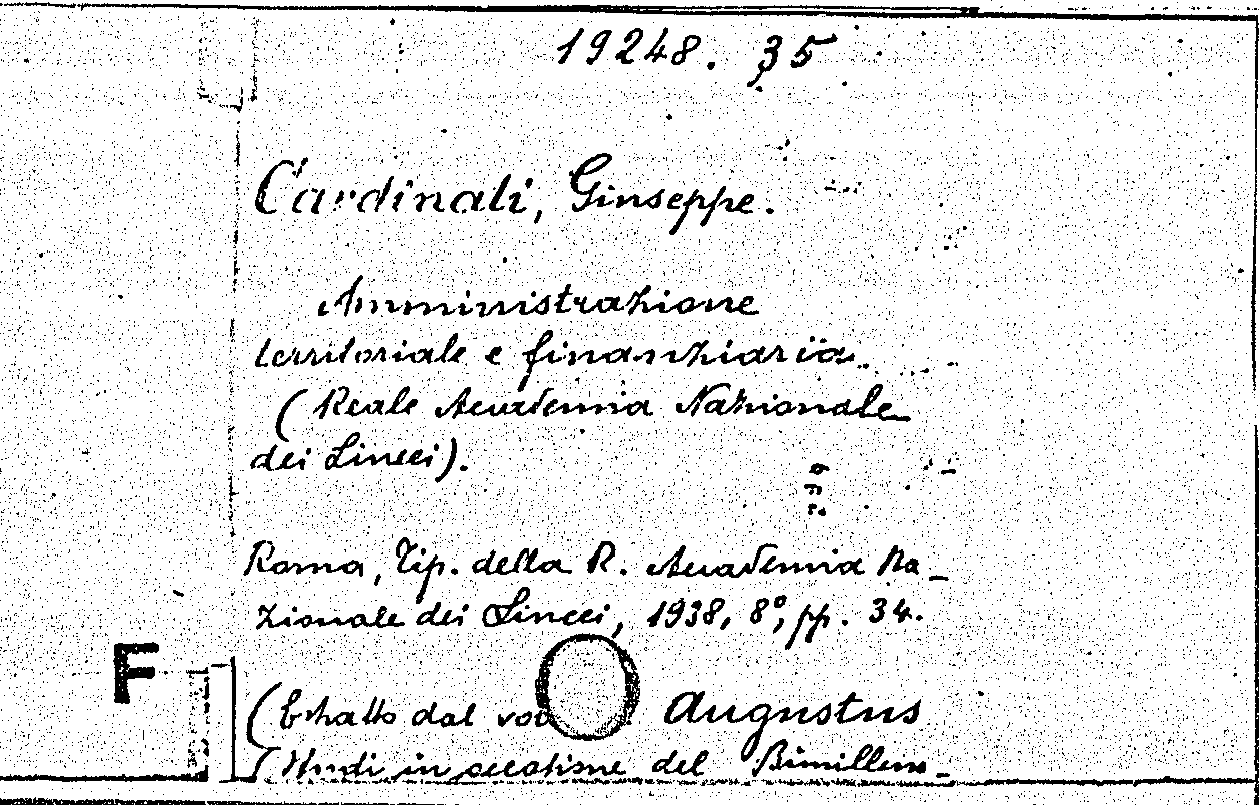 19248. 35
Cardinali, Giuseppe.
Amministrazione
territoriale e finanziaria.
(Reale Accademia Nazionale
dei Lincei).
Roma, Tip. della R. Accademia Na-
zionale dei Lincei, 1938, 8°, pp. 34.
F
(Estratto dal vol. Augustus
(Studi in occasione del Bimillena-